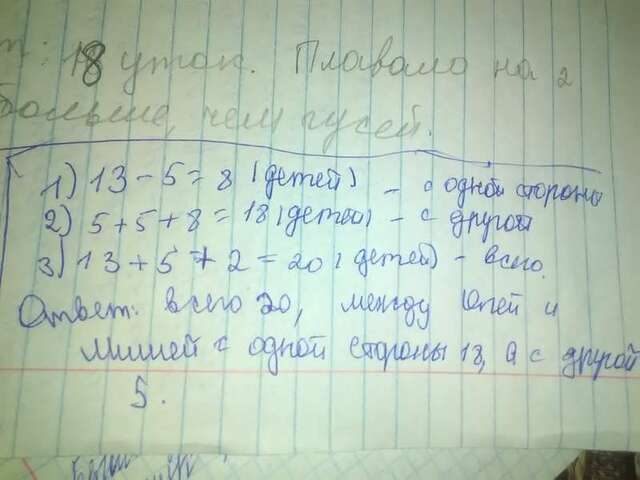 т: 18 уток. Плавало на 2
больше, чем гусей.
1) 13 - 5 = 8 (детей) - с одной стороны
2) 5 + 5 + 8 = 18 (детей) - с другой
3) 13 + 5 + 2 = 20 (детей) - всего.
Ответ: всего 20, между Юлей и
Мишей с одной стороны 13, а с другой
5.